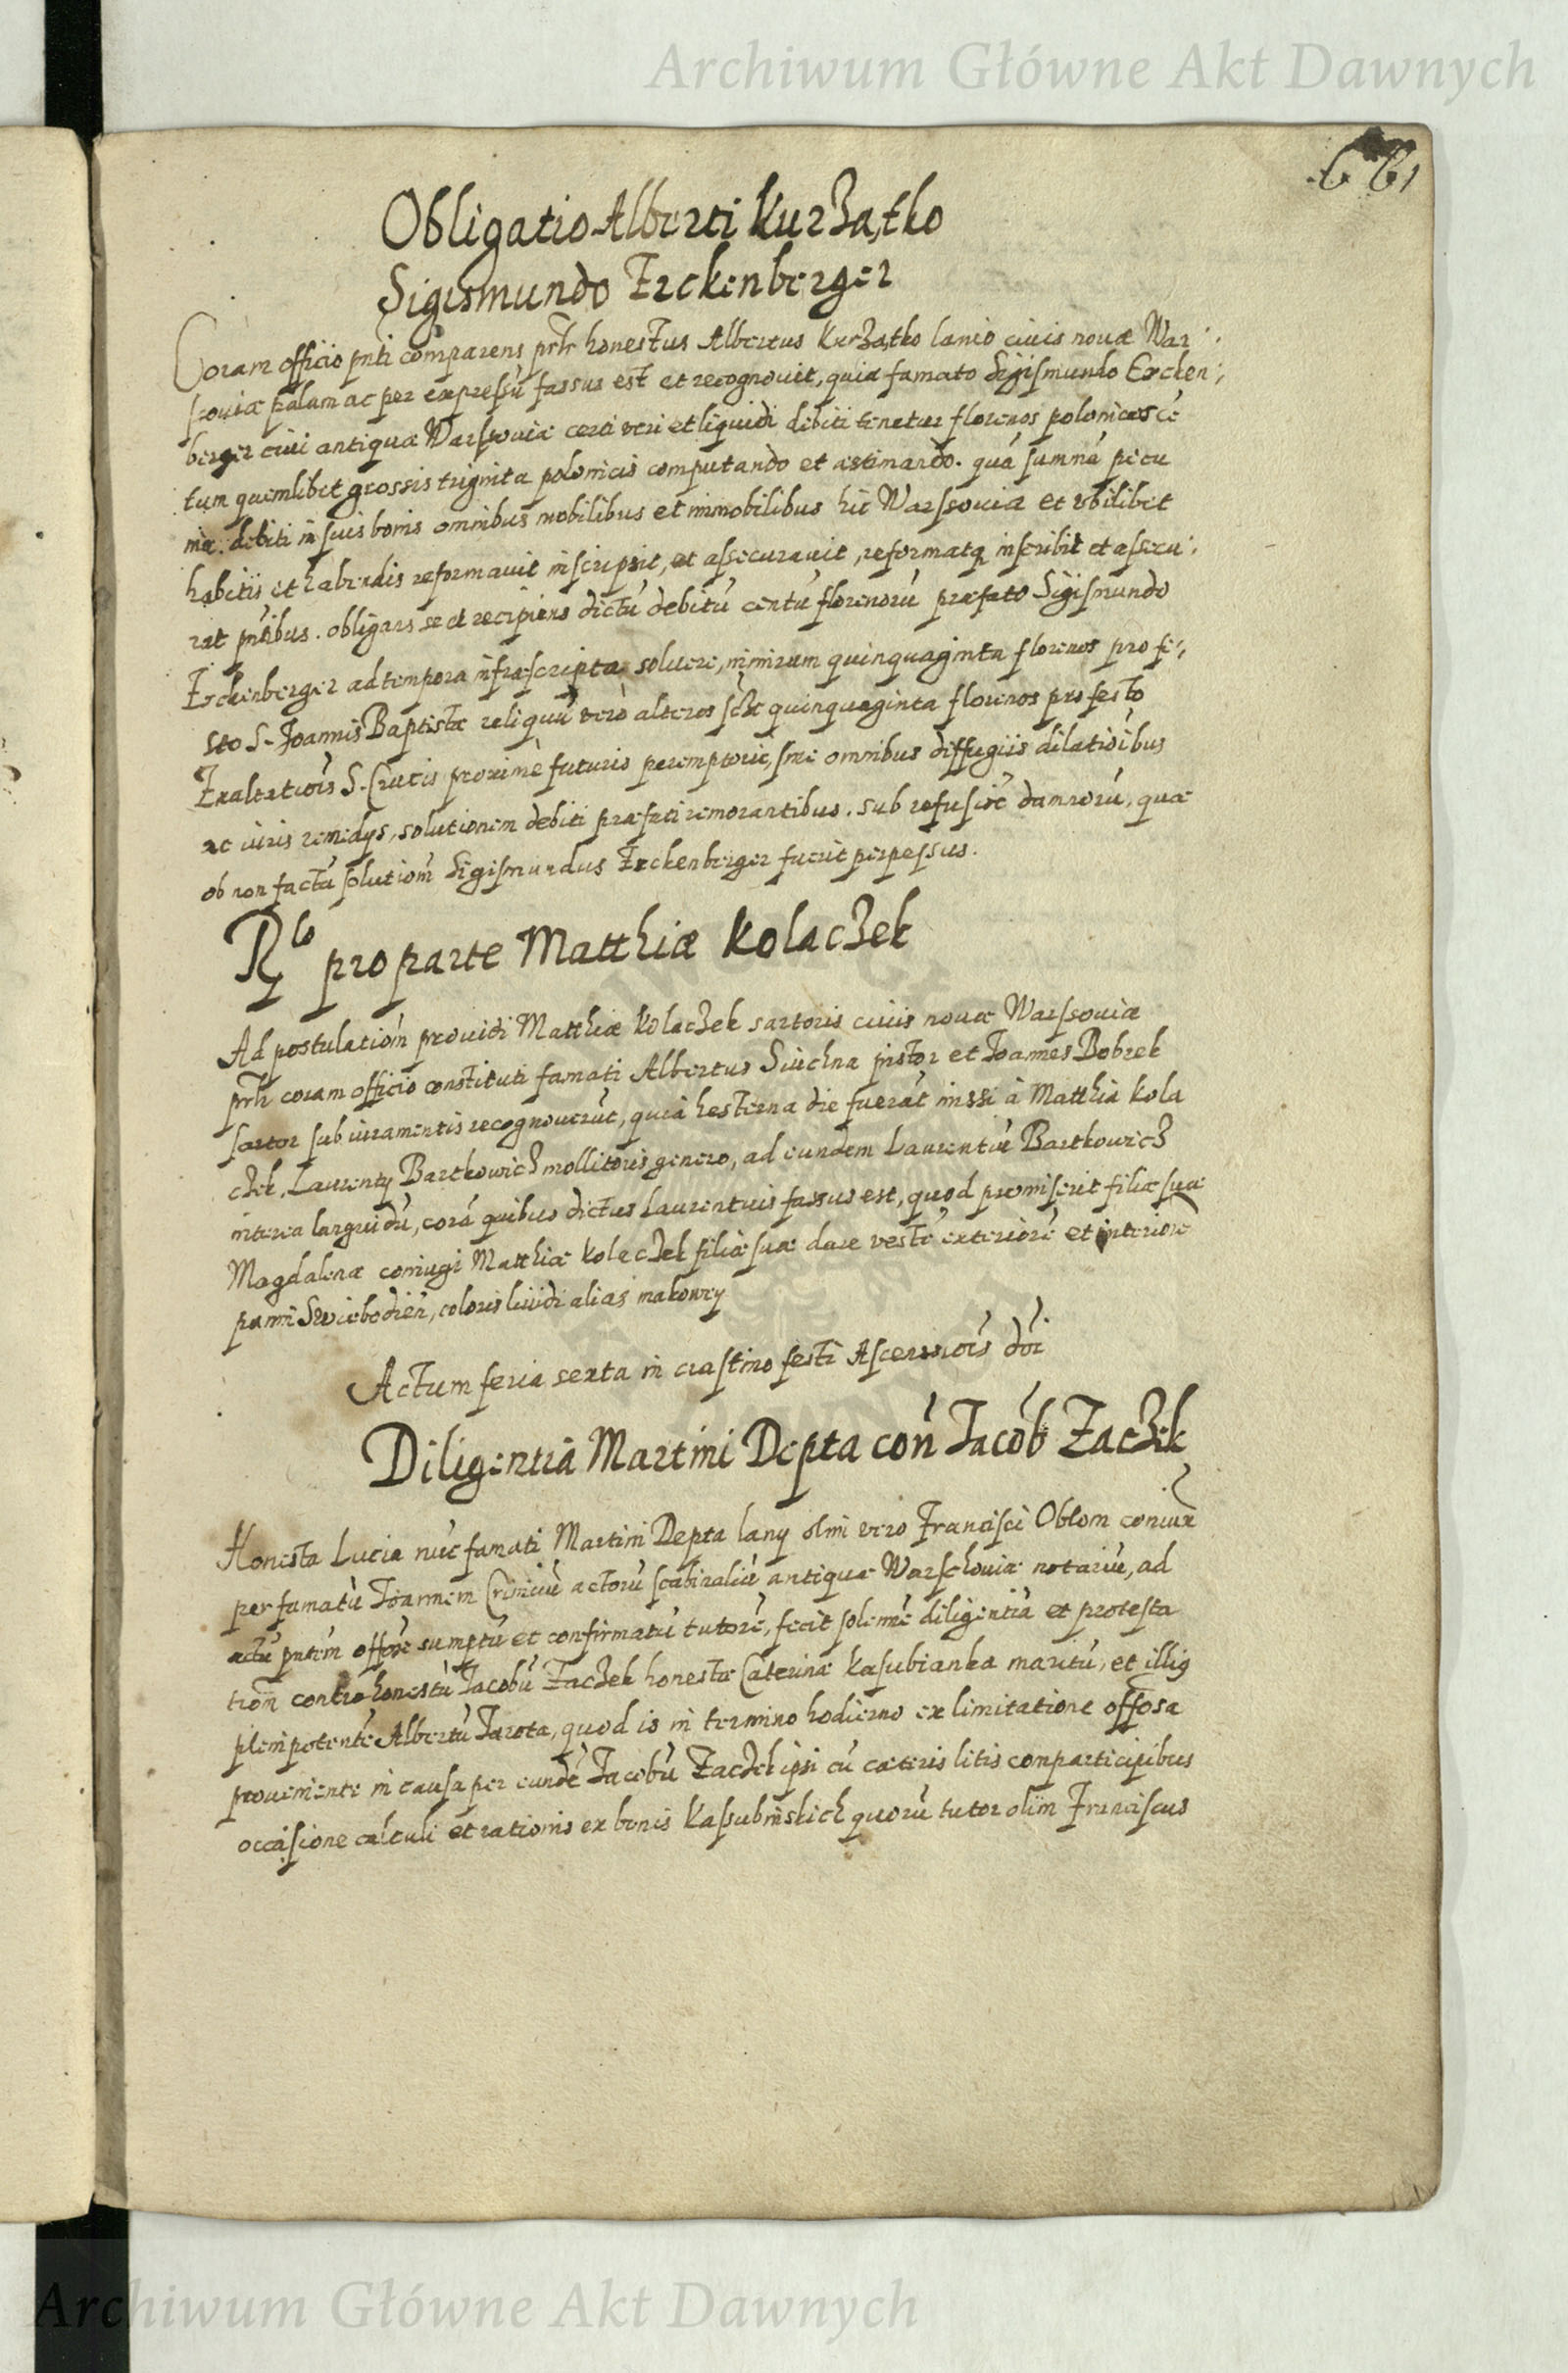 Archiwum Główne Akt Dawnych
Obligatio Alberti Kurżątko
Sigismundo Erckenberger
Coram officio pnti comparens prtr honestus Albertus Kurżątko lanio ciuis nouæ War
souiæ palam ac per expressū fassus est et recognouit, quia famato Sigismundo Ercken
berger ciui antiquæ Warsouiæ certi veri et liquidi debiti tenetur florenos polonicos cē
tum quemlibet grossis triginta polonicis computando et æstimando. quā summā pecu
niæ debiti in suis bonis omnibus mobilibus et immobilibus hic Warsouiæ et vbilibet
habitis et habendis reformauit inscripsit, et assecurauit, reformatq inscribit et assecu
rat pntibus. obligans se et recipiens dictū debitū centū florenorū præfato Sigismundo
Erckenberger ad tempora infrascripta soluere, nimirum quinquaginta florenos pro fe
sto S. Joannis Baptistæ reliquū vero alteros quinquaginta florenos pro festo
Exaltatiōis S. Crucis proxime futuris peremptorie, sine omnibus diffugiis dilatiōibus
ac iuris remedys, solutionem debiti præfati remorantibus. sub refusiōe damnorū, quæ
ob non factā solutiōm Sigismundus Erckenberger fuerit perpessus.
pro parte Matthiæ Kolaczek
Ad postulatiōm prouidi Matthiæ Kolaczek sartoris ciuis nouæ Warsouiæ
prtr coram officio constituti famati Albertus Siuchna pistor et Joannes Bobrek
sartor sub iuramentis recognouerūt, quia hesterna die fuerāt missi à Matthia Kola
czek, Laurenty Bartkowicz mollitoris genero, ad eundem Laurentiū Bartkowicz
interea languidū, corā quibus dictus Laurentius fassus est, quod promiserit filiæ suæ
Magdalenæ coniugi Matthiæ Kolaczek filiæ suæ dare vestē exteriorē et interiorē
panni Swiebodień, coloris liuidi alias makowey
Actum feria sexta in crastino festi Ascensiois dni
Diligentia Martini Depta con Jacob Zaczek
Honesta Lucia nūc famati Martini Depta lany olim vero Francisci Oblom coniūx
per famatū Joannem actorū scabinaliū antiquæ Warschouiæ notariū, ad
actū pntem offose sumptū et confirmatū tutorē, fecit solemnē diligentiā et protesta
tiōm contra honestū Jacobū Zaczek honestæ Caterinæ Kasubianka maritū, et illiq
plenipotentē Albertū Jarota, quod is in termino hodierno ex limitatione offosa
proueniente in causa per eundē Jacobū Zaczek ipsi cū cæteris litis conparticipibus
occasione calculi et rationis ex bonis Kasubinskich quorū tutor olim Franciscus
Archiwum Główne Akt Dawnych